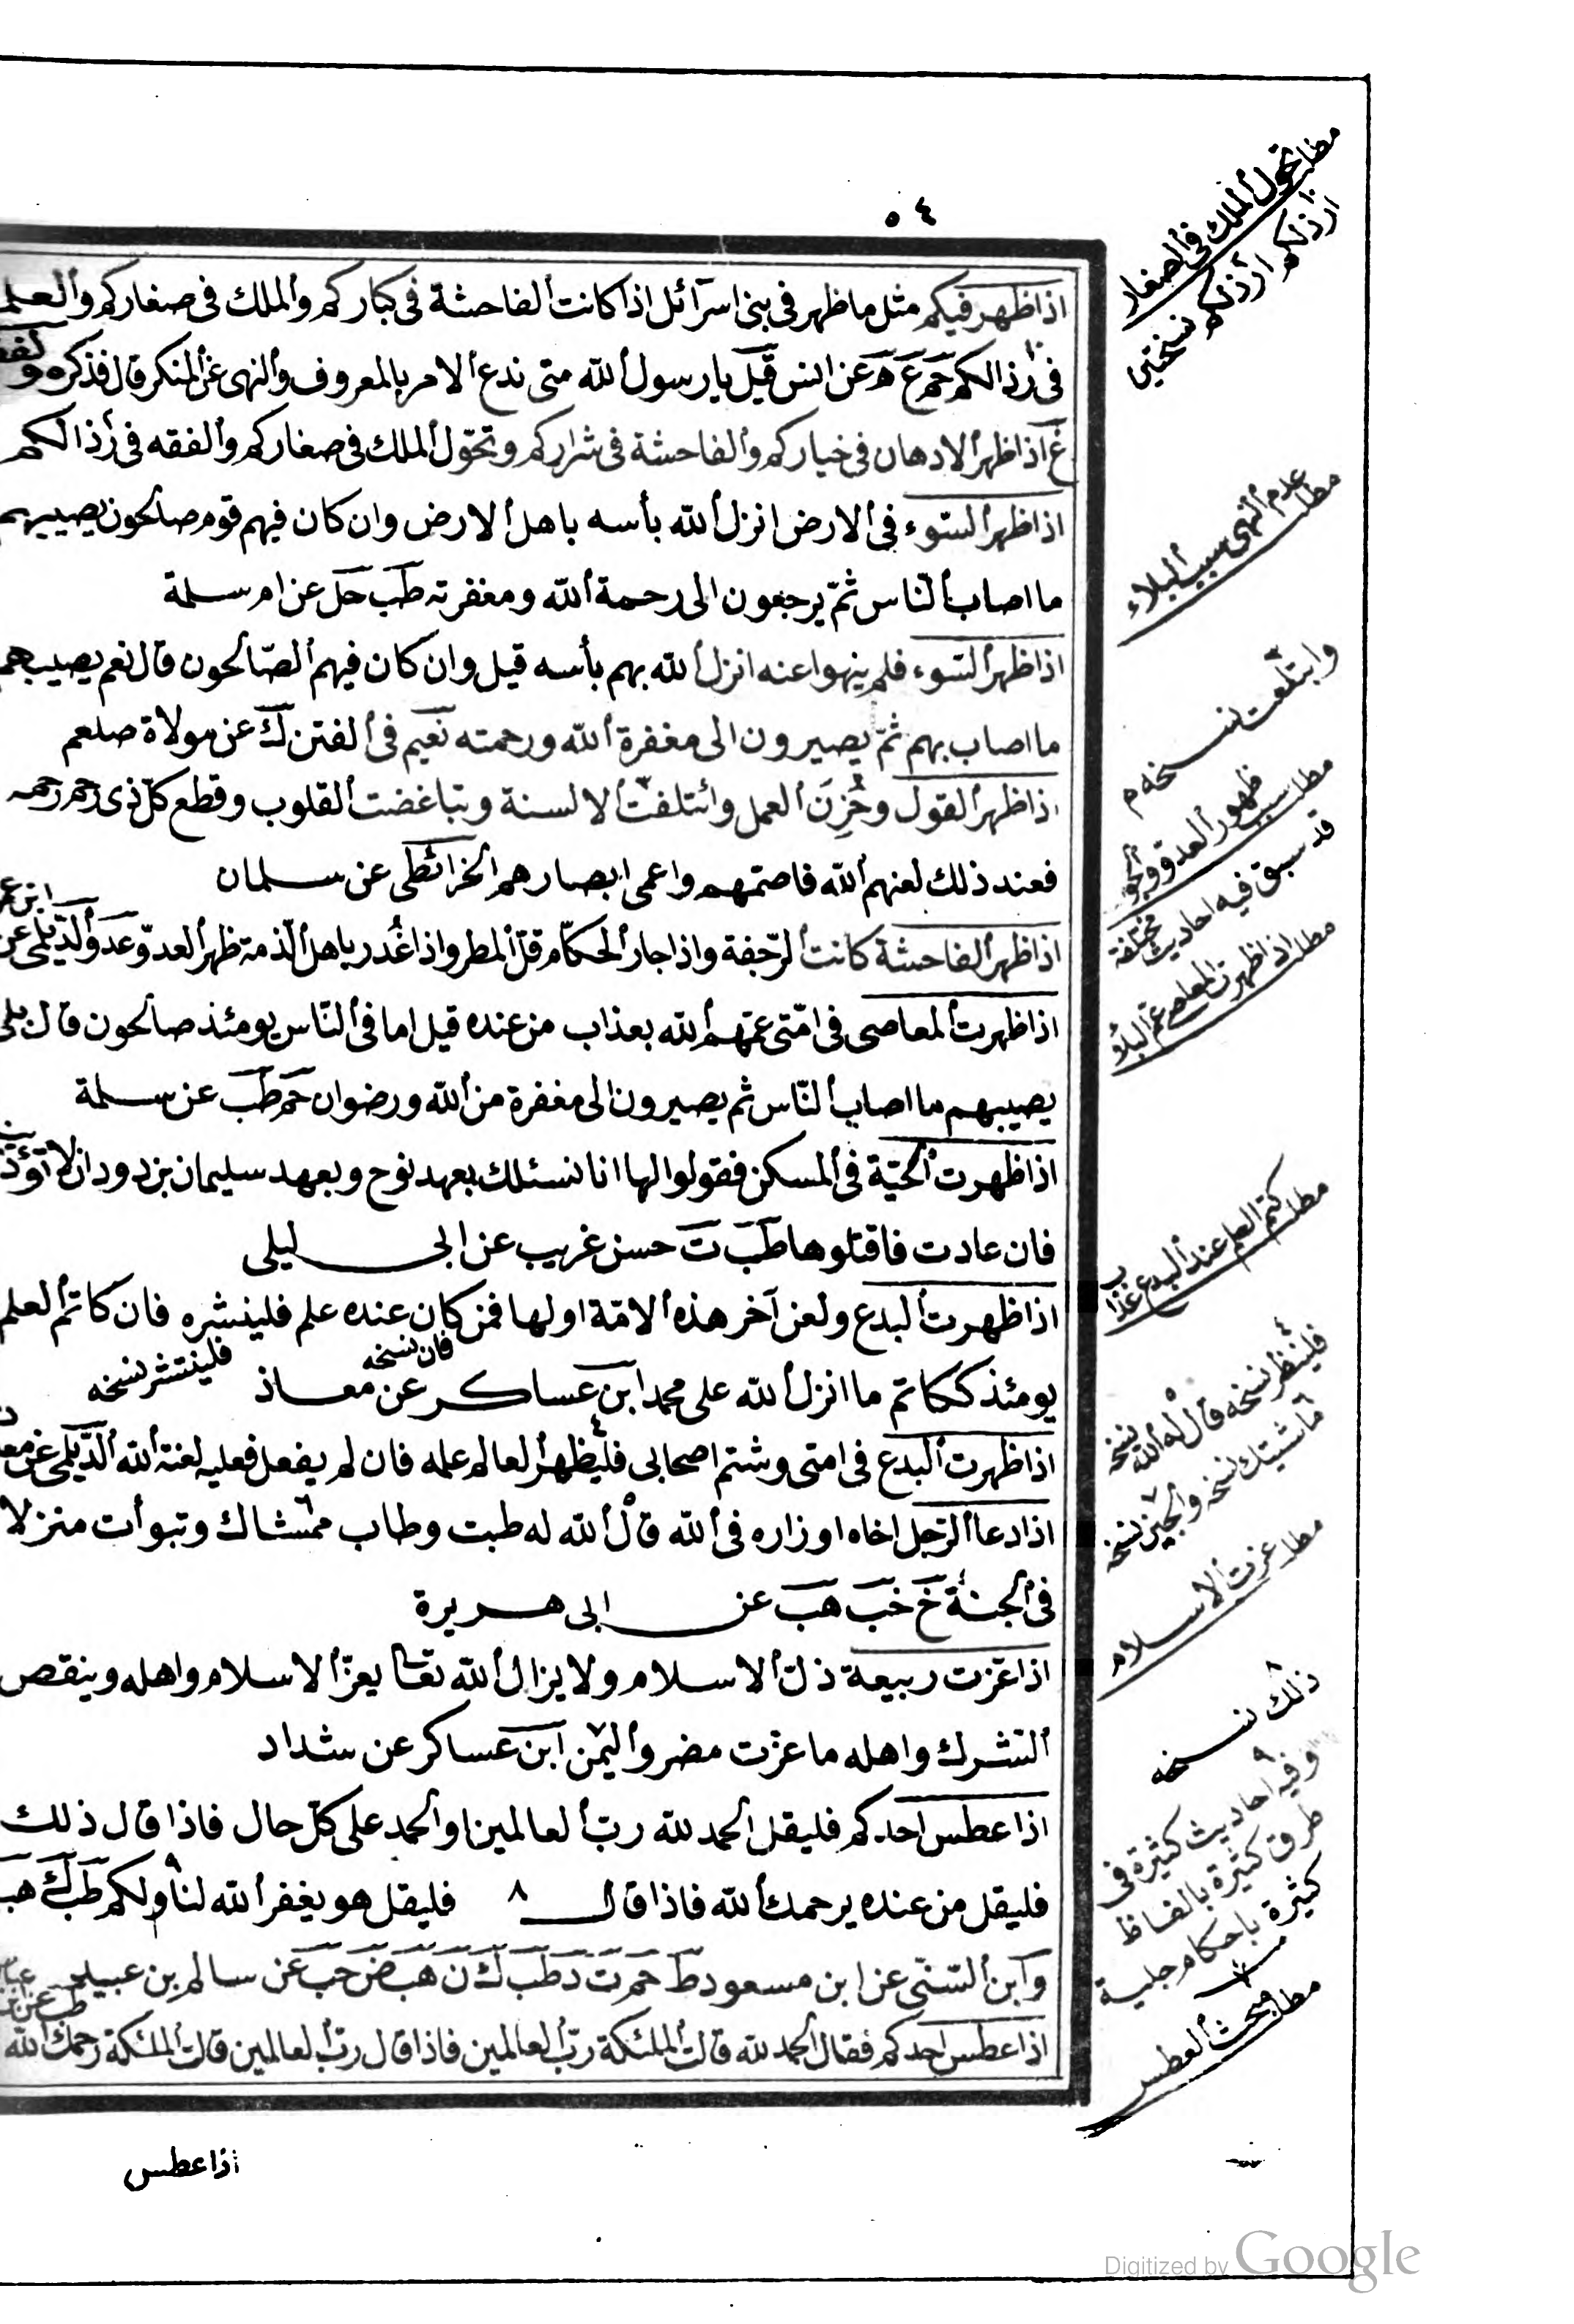 ٥٤
اذا ظهر فيكم مثل ما ظهر فى بنى اسرآئل اذا كانت الفاحشة فى كباركم والملك فى صغاركم والعلم
فى رذالكم حم ع ه عن انس قيل يا رسول الله متى ندع الامر بالمعروف والنهى عن المنكر قال فذكره
غ اذا ظهر الادهان فى خياركم والفاحشة فى شراركم وتحوّل الملك فى صغاركم والفقه فى رذالكم
اذا ظهر السّوء فى الارض انزل الله بأسه باهل الارض وان كان فيهم قوم صالحون يصيبهم
ما اصاب النّاس ثمّ يرجعون الى رحمة الله ومغفرته طب حل عن ام سلمة
اذا ظهر السّوء فلم ينهوا عنه انزل الله بهم بأسه قيل وان كان فيهم الصّالحون قال نعم يصيبهم
ما اصابهم ثمّ يصيرون الى مغفرة الله ورحمته نعيم فى الفتن ك عن مولاة صلعم
اذا ظهر القول وخُزِنَ العمل وائتلفت الالسنة وتباغضت القلوب وقطع كلّ ذى رحم رحمه
فعند ذلك لعنهم الله فاصمّهم واعمى ابصارهم الخرائطى عن سلمان
اذا ظهر الفاحشة كانت الرّجفة واذا جار الحكّام قلّ المطر واذا غُدر باهل الذمة ظهر العدوّ عد والدّيلمى عن
ابن عمر
اذا ظهرت المعاصى فى امّتى عمّهم الله بعذاب من عنده قيل اما فى النّاس يومئذ صالحون قال بلى
يصيبهم ما اصاب النّاس ثم يصيرون الى مغفرة من الله ورضوان حم طب عن سلمة
اذا ظهرت الحيّة فى المسكن فقولوا لها انا نسئلك بعهد نوح وبعهد سليمان بن دود ان لا تؤذينا
فان عادت فاقتلوها طب ت حسن غريب عن ابى ليلى
اذا ظهرت البدع ولعن آخر هذه الامّة اولها فمن كان عنده علم فلينشره فان كاتم العلم
فان نسخه فلينتشر نسخه
يومئذ ككاتم ما انزل الله على محمد ابن عساكر عن معاذ
اذا ظهرت البدع فى امتى وشتم اصحابى فليظهر العالم علمه فان لم يفعل فعليه لعنة الله الدّيلمى عن معاذ
اذا دعا الرّجل اخاه او زاره فى الله قال الله له طبت وطاب ممشاك وتبوأت منزلا
فى الجنة خ خب هب عن ابى هريرة
اذا عزت ربيعة ذلّ الاسلام ولا يزال الله تعالى يعزّ الاسلام واهله وينقص
الشرك واهله ما عزت مضر واليمن ابن عساكر عن شداد
اذا عطس احدكم فليقل الحمد لله ربّ العالمين او الحمد على كلّ حال فاذا قال ذلك
فليقل من عنده يرحمك الله فاذا قال ٨ فليقل هو يغفر الله لنا ولكم طب ك هب
وابن السّنى عن ابن مسعود ط حم ت د طب ك ن هب ض حب عن سالم بن عبيد
اذا عطس احدكم فقال الحمد لله قالت الملئكة ربّ العالمين فاذا قال ربّ العالمين قالت الملئكة رحمك الله
اذا عطس
مطلب تحوّل الملك فى الصغار
ارذلكم ارذلكم نسختين
مطلب عدم النهى سبب البلاء
وابتلعت نسخه م
مطلب سبب ظهور العدوّ
قد سبق فيه احاديث مختلفة
مطلب اذا ظهرت المعاصى عمّ البلاء
مطلب كتم العلم عند البدع عذاب
فلينظر نسخه قال له الله نسخه
ما شيتك نسخه والجيز نسخه
مطلب عزت الاسلام
ذلك نسخه
وفيه احاديث كثيرة فى
طرق كثيرة بالفاظ
كثيرة باحكام جلية
مطلب مبحث العطس
Digitized by Google